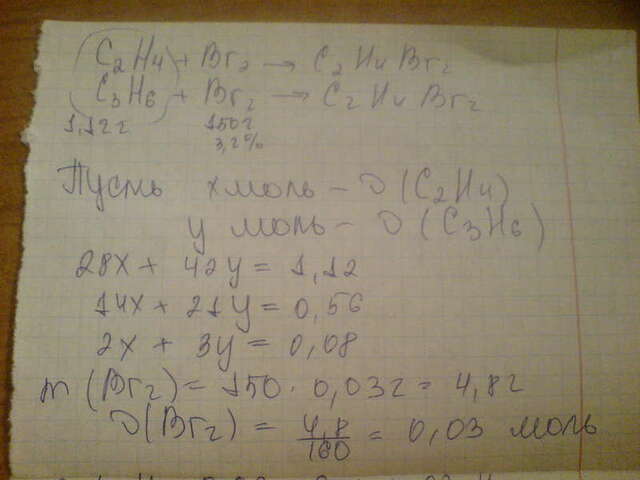 C₂H₄ + Br₂ → C₂H₄Br₂
C₃H₆ + Br₂ → C₂H₄Br₂
1,12г 150г
3,2%
Пусть x моль – ν(C₂H₄)
y моль – ν(C₃H₆)
28x + 42y = 1,12
14x + 21y = 0,56
2x + 3y = 0,08
m(Br₂) = 150 · 0,032 = 4,8г
ν(Br₂) = 4,8/160 = 0,03 моль